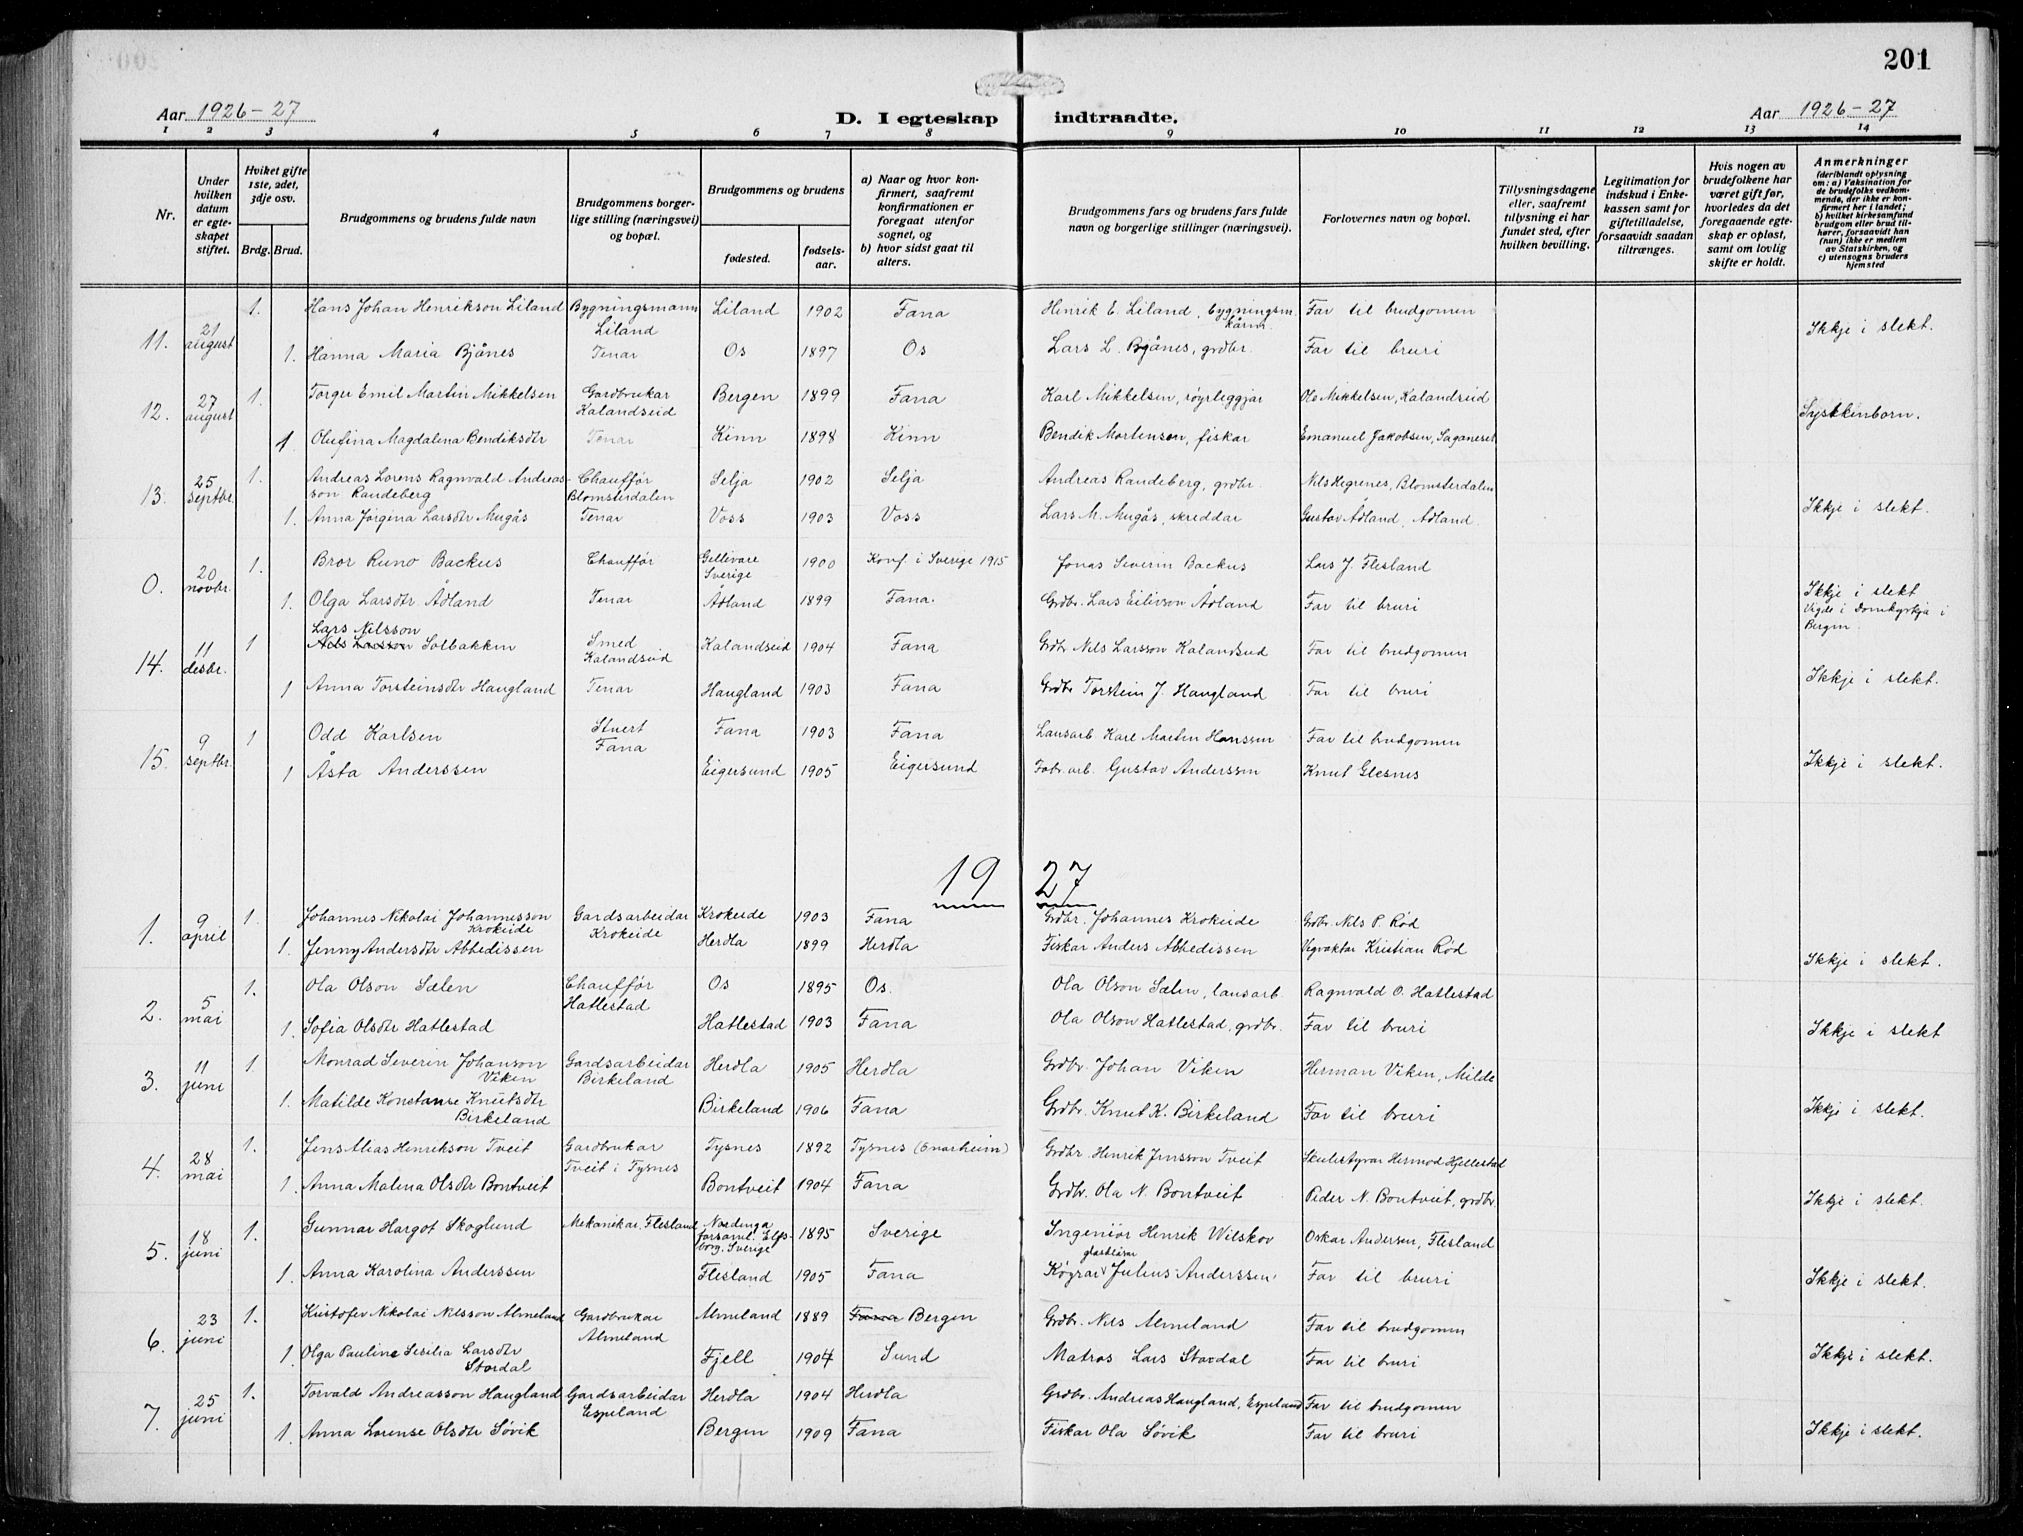 201
Aar 1926-27 D. I egteskap indtraadte. Aar 1926-27
1 2 3 4 5 6 7 8 9 10 11 12 13 14
Nr.
Under hvilken datum er egteskapet stiftet.
Hviket gifte 1ste, 2det, 3dje osv.
Brdg. Brud.
Brudgommens og brudens fulde navn
Brudgommens borgerlige stilling (næringsvei) og bopæl.
Brudgommens og brudens
fødested.
fødselsaar.
a) Naar og hvor konfirmert, saafremt konfirmationen er foregaat utenfor sognet, og
b) hvor sidst gaat til alters.
Brudgommens fars og brudens fars fulde navn og borgerlige stillinger (næringsvei).
Forlovernes navn og bopæl.
Tillysningsdagene eller, saafremt tillysning ei har fundet sted, efter hvilken bevilling.
Legitimation for indskud i Enkekassen samt for giftetilladelse, forsaavidt saadan tiltrænges.
Hvis nogen av brudefolkene har været gift før, hvorledes da det foregaaende egteskap er opløst, samt om lovlig skifte er holdt.
Anmerkninger (deriblandt oplysning om: a) Vaksination for de brudefolks vedkommende, der ikke er konfirmert her i landet; b) hvilket kirkesamfund brudgom eller brud tilhører, forsaavidt han (hun) ikke er medlem av Statskirken, og c) utensogns bruders hjemsted
11. 21 august 1. Hans Johan Henrikson Liland Bygningsmann Liland Liland 1902 Fana Henrik E. Liland, bygningsm. Far til brudgomen Ikkje i slekt.
1. Hanna Maria Bjånes Tenar Os 1897 Os Lars L. Bjånes, grdbr. Far til bruri
12. 27 august 1. Torger Emil Martin Mikkelsen Gardbrukar Kalandseid Bergen 1899 Fana Karl Mikkelsen, røyrleggjar Ole Mikkelsen, Kalandseid Syskkinborn.
1 Olufina Magdalena Bendiksdtr Tenar Kinn 1898 Kinn Bendik Mortensen, fiskar Emanuel Jakobsen, Saganeset
13. 25 septbr. 1. Andreas Lorens Ragnvald Andreasson Randeberg Chauffør Blomsterdalen Selja 1902 Selja Andreas Randeberg, grdbr. Nils Hegrenes, Blomsterdalen Ikkje i slekt.
1. Anna Jørgina Larsdtr Mugås Tenar Voss 1903 Voss Lars M. Mugås, skreddar Gustav Ådland, Ådland
0. 20 novbr. 1. Bror Runo Backus Chauffør Gellivare Sverige 1900 Konf. i Sverige 1915 Jonas Severin Backus Lars J. Flesland Ikkje i slekt Vigde i Domkyrkja i Bergen
1. Olga Larsdtr. Ådland Tenar Ådland 1899 Fana. Grdbr. Lars Eilivson Ådland Far til bruri
14. 11 desbr. 1 Lars Nilsson Nils Larsson Solbakken Smed Kalandseid Kalandseid 1904 Fana Grdbr Nils Larsson Kalandseid Far til brudgomen Ikkje i slekt.
1 Anna Torsteinsdtr Haugland Tenar Haugland 1903 Fana Grdbr Torstein J. Haugland Far til bruri
15. 9 septbr. 1 Odd Karlsen Stuert Fana Fana 1903 Fana Lausarb Karl Martin Hanssen Far til brudgomen Ikkje i slekt.
1 Åsta Anderssen Eigersund 1905 Eigersund Fabr. arb. Gustav Anderssen Knut Glesnes
1927
1. 9 april 1. Johannes Nikolai Johannesson Krokeide Gardsarbeidar Krokeide Krokeide 1903 Fana Grdbr. Johannes Krokeide Grdbr. Nils P. Rød Ikkje i slekt.
1. Jenny Andersdtr Abbedissen Herdla 1899 Herdla Fiskar Anders Abbedissen Vegvaktar Kristian Rød
2. 5 mai 1. Ola Olson Sælen Chauffør Hatlestad Os 1895 Os. Ola Olson Sælen, lausarb. Ragnvald O. Hatlestad Ikkje i slekt
1. Sofia Olsdtr Hatlestad Hatlestad 1903 Fana Ola Olson Hatlestad, grdbr. Far til bruri
3. 11 juni 1. Monrad Severin Johanson Viken Gardsarbeidar Birkeland Herdla 1905 Herdla Grdbr. Johan Viken Herman Viken, Milde Ikkje i slekt.
1. Matilde Konstanse Knutsdtr Birkeland Birkeland 1906 Fana Grdbr. Knut K. Birkeland Far til bruri
4. 28 mai 1. Jens Alias Henrikson Tveit Gardbrukar Tveit i Tysnes Tysnes 1892 Tysnes (Onarheim) Grdbr. Henrik Jensson Tveit Skulestyrar Hermod Hjellestad Ikkje i slekt.
1. Anna Malena Olsdtr Bontveit Bontveit 1904 Fana Grdbr. Ola N. Bontveit Peder N. Bontveit, grdbr.
5. 18 juni 1. Gunnar Hargot Skoglund Mekanikar, Flesland Nordinga forsaml. Elfsborg. Sverige 1895 Sverige Ingeniör Henrik Wilskov Oskar Andersen, Flesland Ikkje i slekt.
1. Anna Karolina Anderssen Flesland 1905 Fana Julius Anderssen Far til bruri
6. 23 juni 1. Kristofer Nikolai Nilsson Almeland Gardbrukar Almeland Almeland 1889 Fana Bergen Grdbr. Nils Almeland Far til brudgomen Ikkje i slekt.
1. Olga Pauline Sesilia Larsdtr Stordal Fjell 1904 Sund Matros Lars Stordal Far til bruri
7. 25 juni 1. Torvald Andreasson Haugland Gardsarbeidar Espeland Herdla 1904 Herdla Grdbr. Andreas Haugland, Espeland Far til brudgomen Ikkje i slekt.
1. Anna Lorense Olsdtr Søvik Bergen 1909 Fana Fiskar Ola Søvik Far til bruri